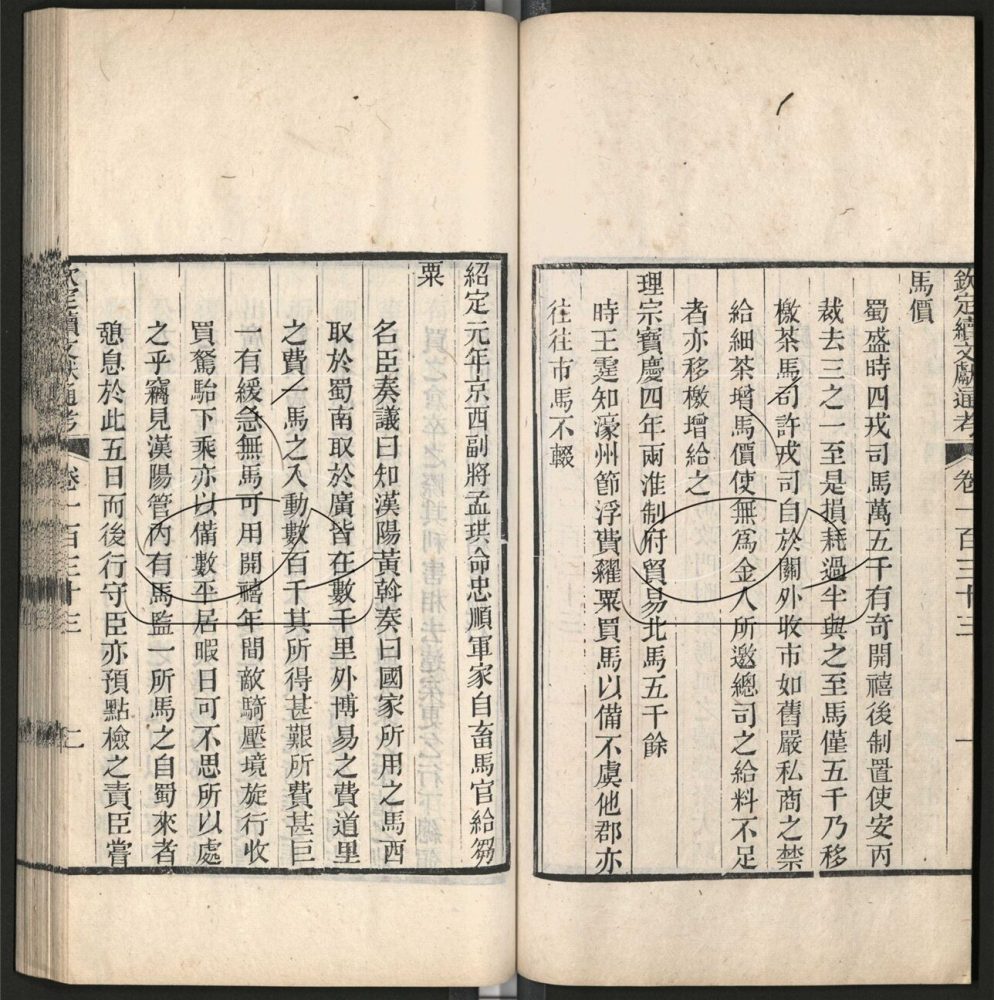 欽定續文獻通考 卷一百三十三 一
馬價
蜀盛時四戎司馬萬五千有奇開禧後制置使安丙
裁去三之一至是損耗過半與之至馬僅五千乃移
檄茶馬司許戎司自於關外收市如舊嚴私商之禁
給細茶增馬價使無爲金人所邀總司之給料不足
者亦移檄增給之
理宗寶慶四年兩淮制府貿易北馬五千餘
時王霆知濠州節浮費糴粟買馬以備不虞他郡亦
往往市馬不輟
紹定元年京西副將孟珙命忠順軍家自畜馬官給芻
粟
名臣奏議曰知漢陽黃斡奏曰國家所用之馬西
取於蜀南取於廣皆在數千里外博易之費道里
之費一馬之入動數百千其所得甚艱所費甚巨
一有緩急無馬可用開禧年間敵騎壓境旋行收
買駑駘下乘亦以備數平居暇日可不思所以處
之乎竊見漢陽管內有馬監一所馬之自蜀來者
憩息於此五日而後行守臣亦預點檢之責臣嘗
欽定續文獻通考 卷一百三十三 二